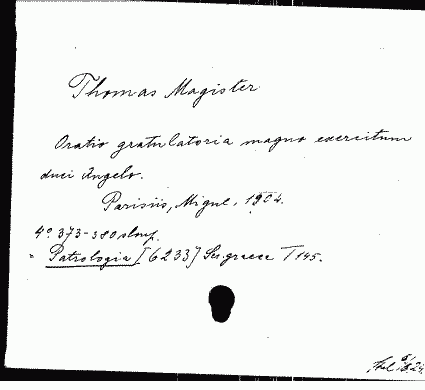 Thomas Magister
Oratio gratulatoria magno exercitum
duci Angelo.
Parisiis, Migne, 1904.
4º 373-380 sloup.
= Patrologia [6233] Ser. graeca T 145.